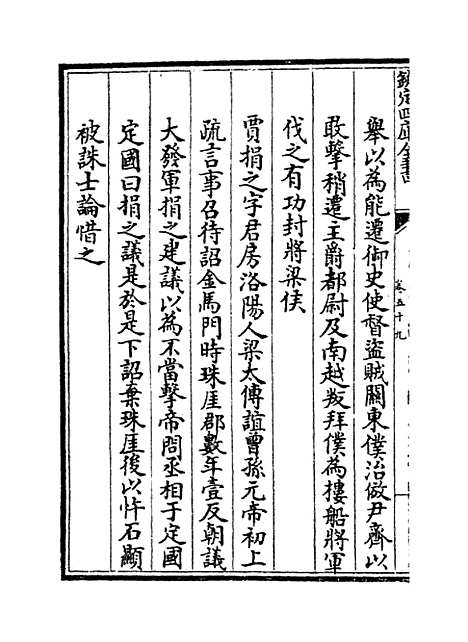 欽定四庫全書
卷五十九
舉以為能遷御史使督盜賊關東僕治倣尹齊以
敢擊稍遷主爵都尉及南越叛拜僕為樓船將軍
伐之有功封將梁侯
賈捐之字君房洛陽人梁太傅誼曾孫元帝初上
疏言事召待詔金馬門時珠厓郡數年壹反朝議
大發軍捐之建議以為不當擊帝問丞相于定國
定國曰捐之議是於是下詔棄珠厓後以忤石顯
被誅士論惜之